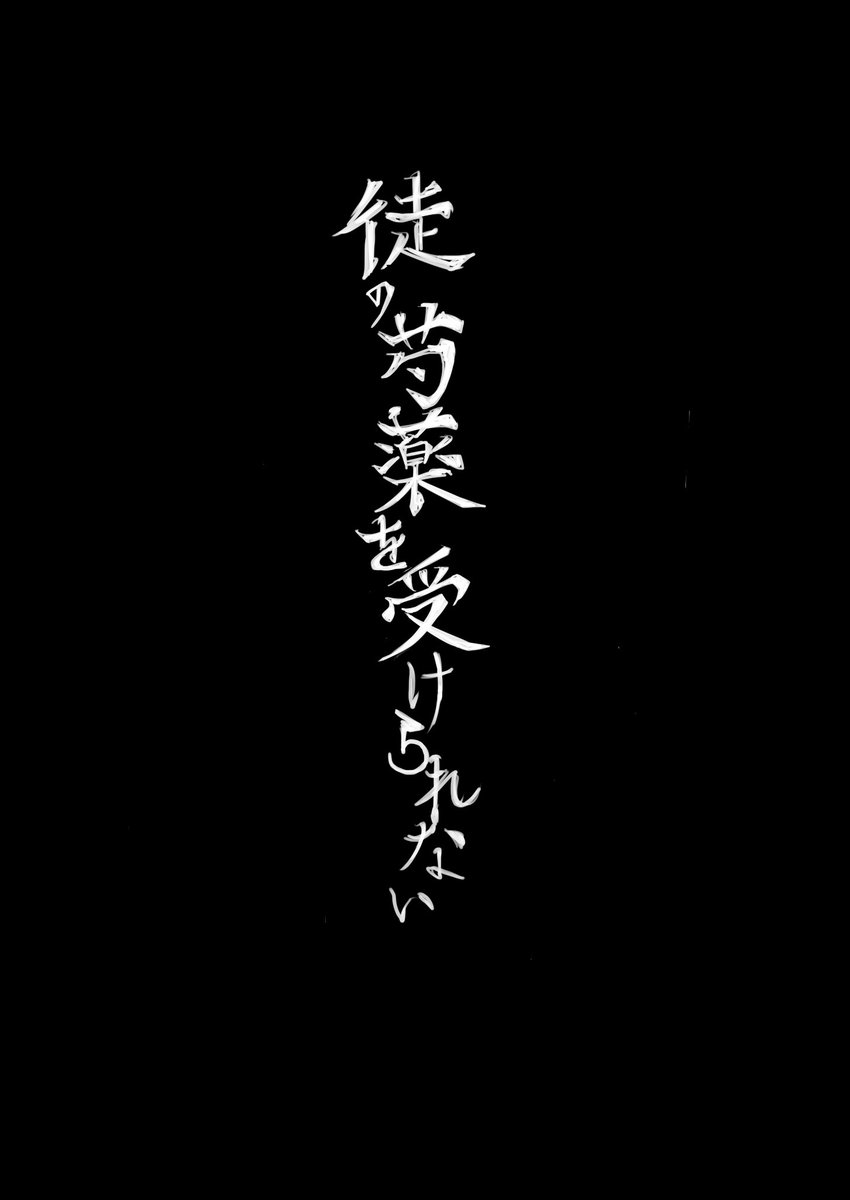 徒の芍薬を受けられない